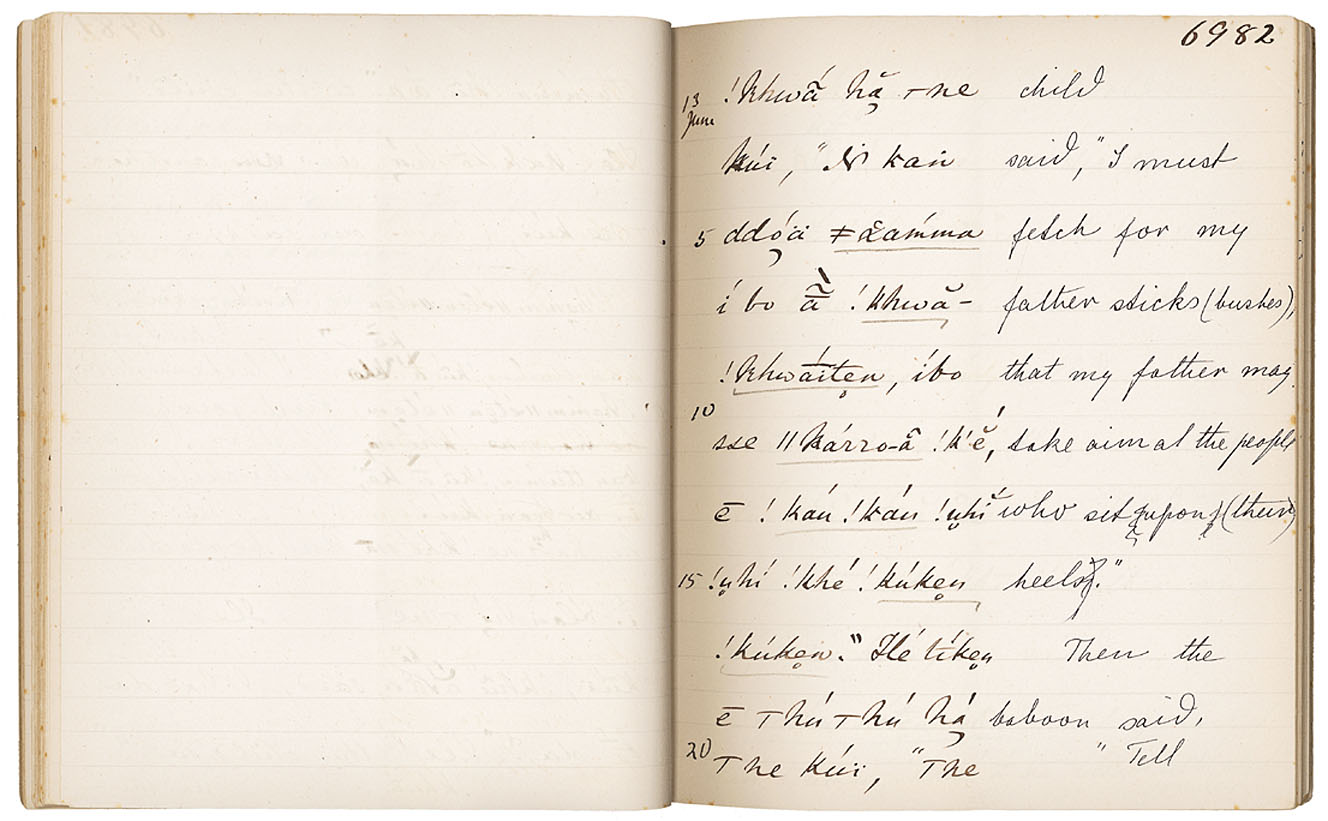 6982
13 June !khwá̃ hặ ⊤ne child
kúï, "Ṅ kaṅ said, "I must
5 ddọ́ä ≠x̃aḿma fetch for my
íbo ã̄̀ !khwã̆- father sticks (bushes),
!khwáitẹn, íbo that my father may
10
sse ǁkárro-ã !k'ĕ́, take aim at the people
ē !káṅ !káṅ !ṇhĭ́ who sit (upon) (their)
15 !ṇhí !khé !kúkẹn heels."
!kúkẹn." Hé tíkẹn Then the
ē ⊤hú⊤hú hạ́ baboon said,
20 ⊤ne kúï, "⊤ne "Tell